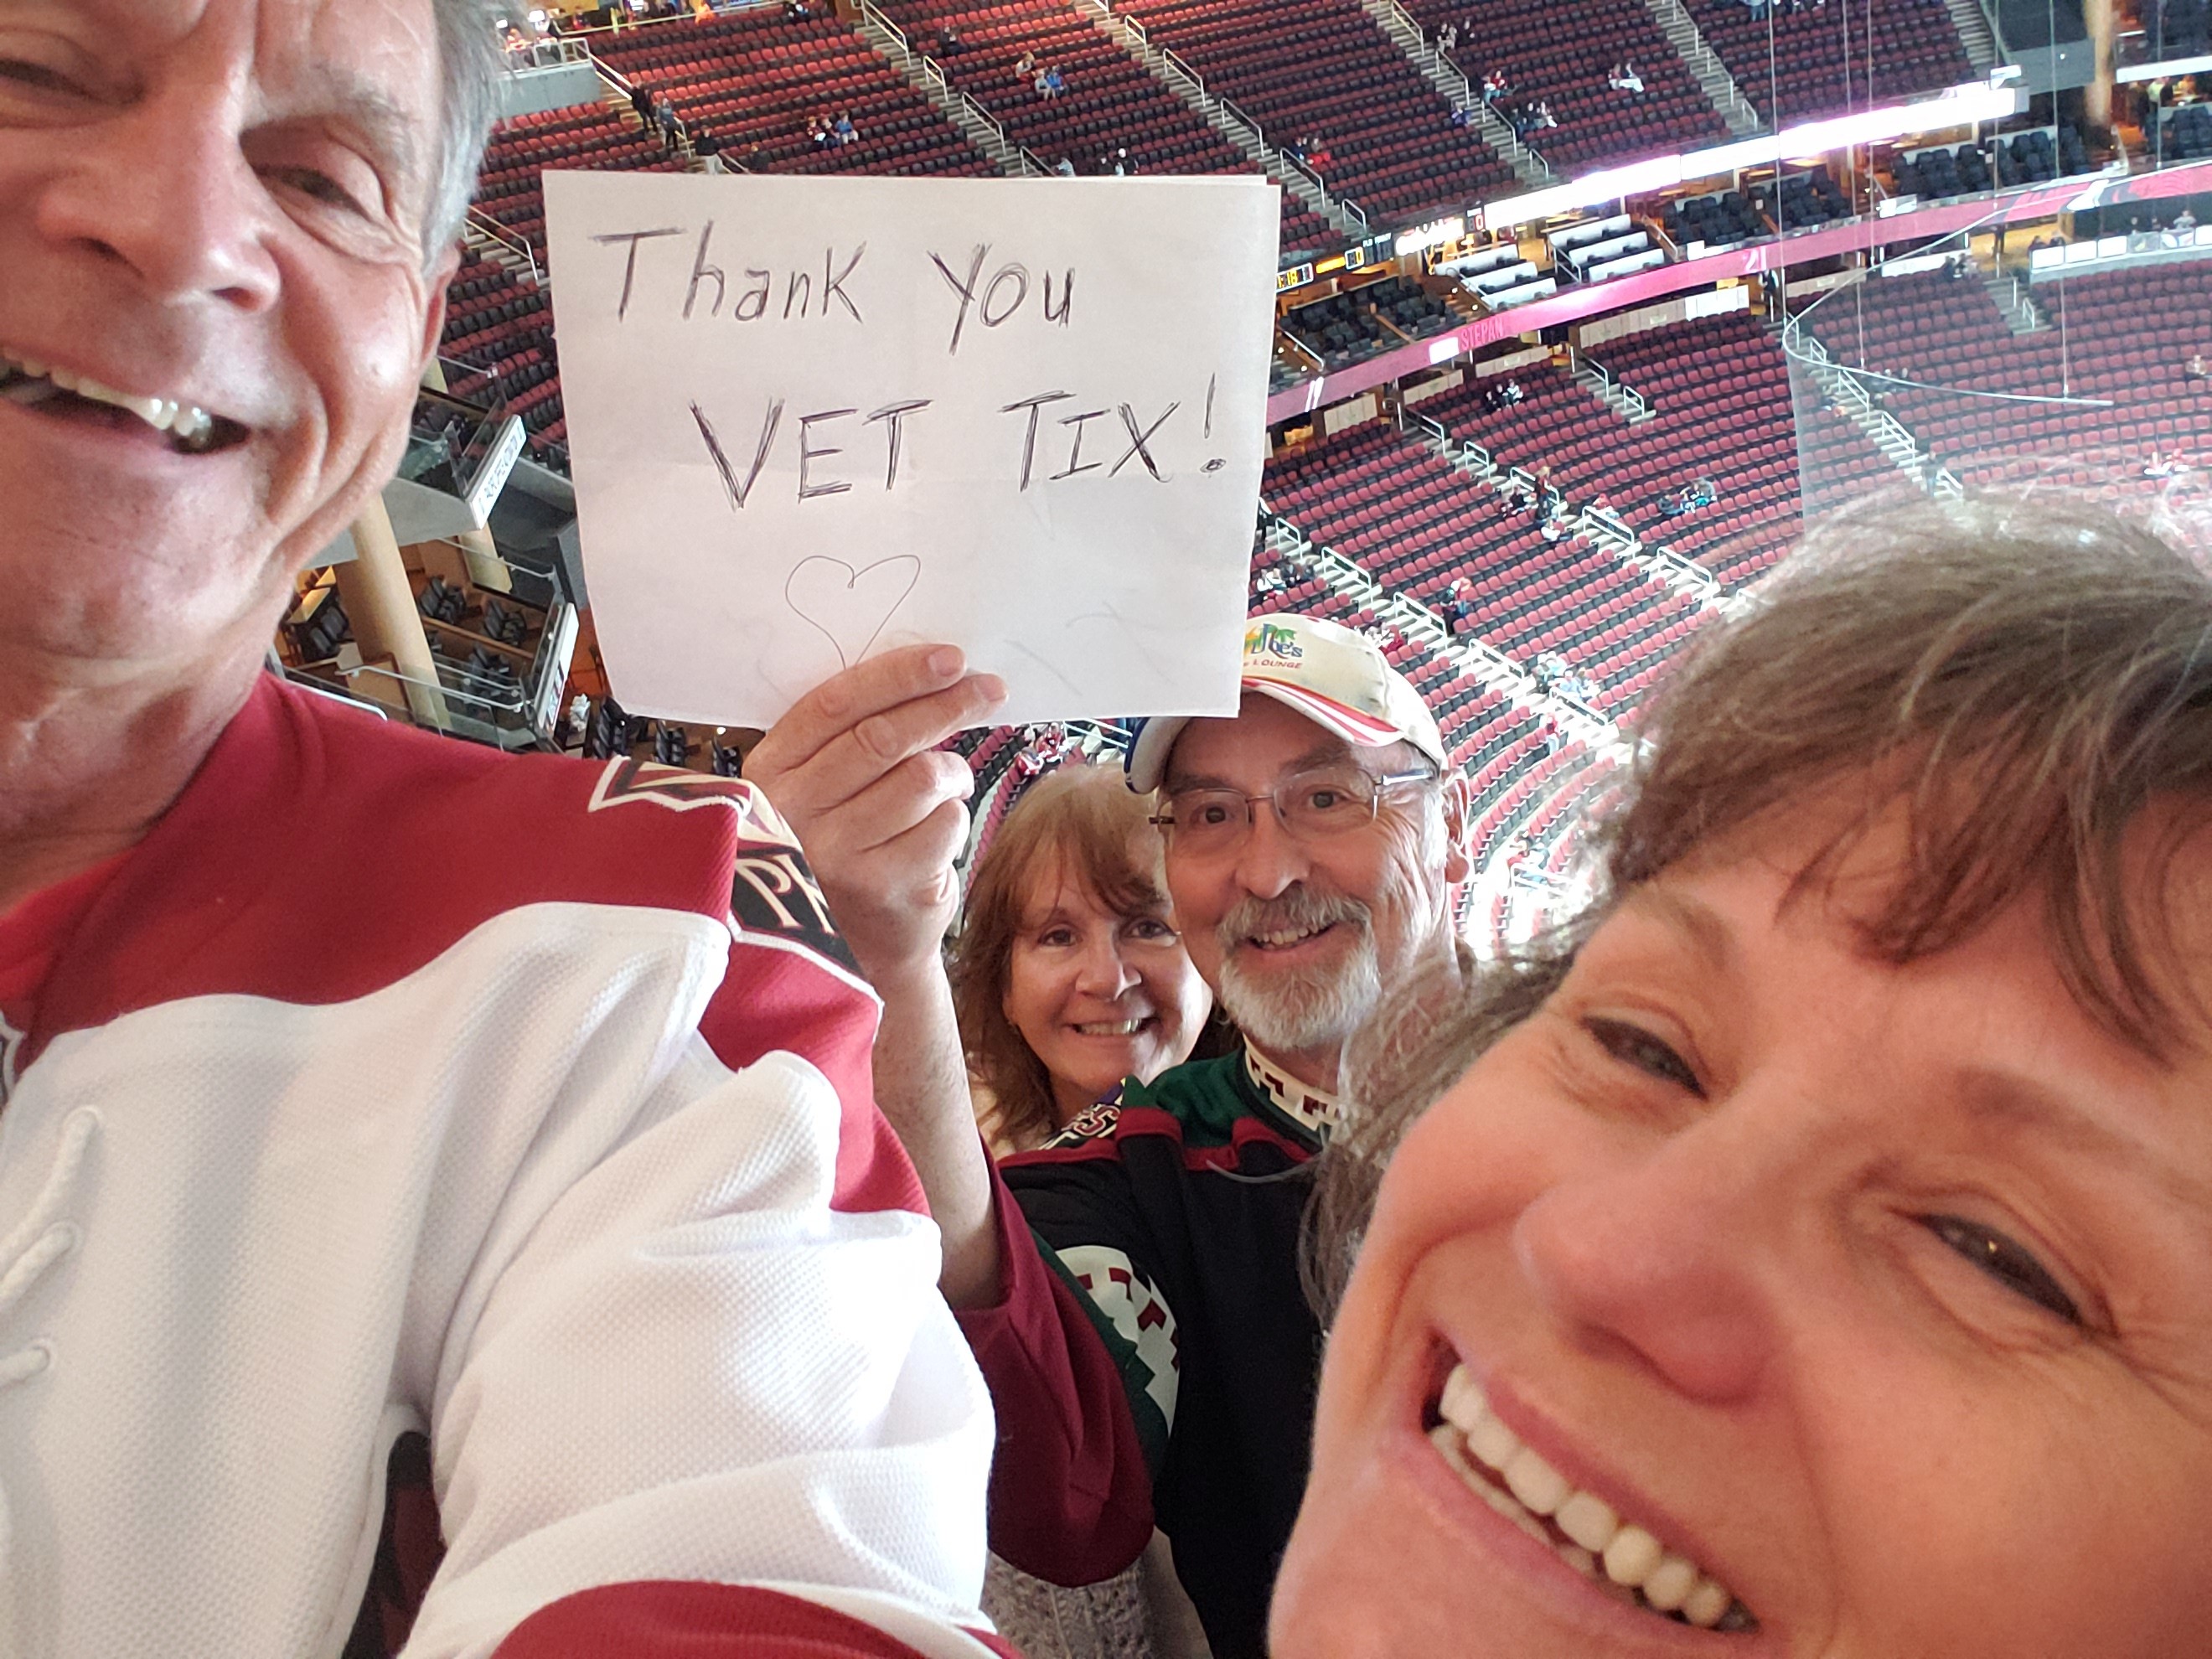 Thank you
VET TIX!
STEPAN
Joe's
LOUNGE
PH